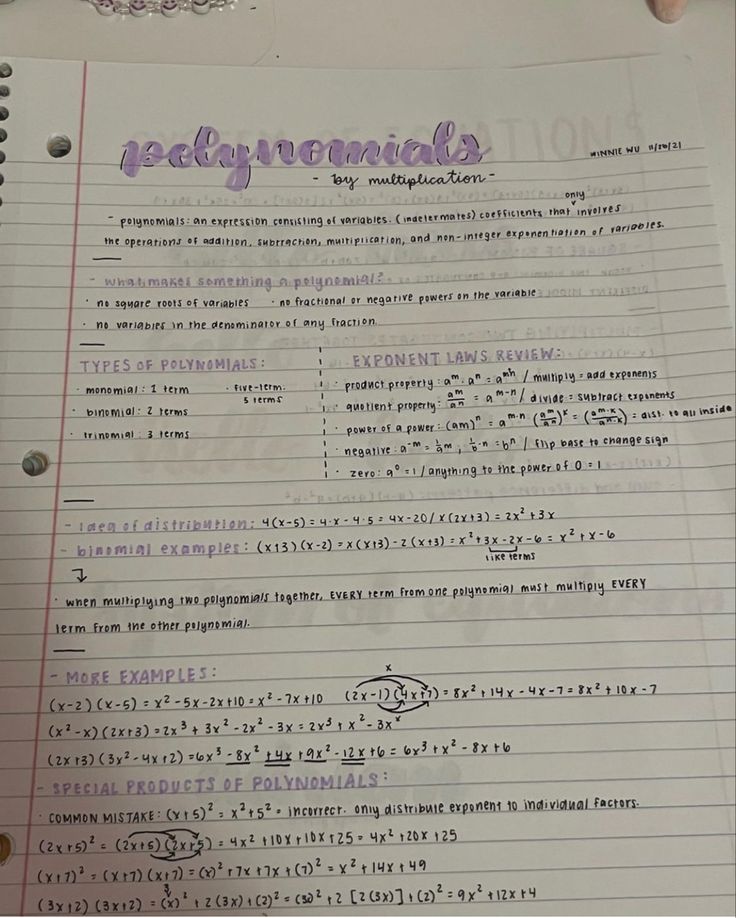 polynomials
WINNIE WU 11/20/21
- by multiplication -
only
- polynomials: an expression consisting of variables. (indetermates) coefficients that involves
the operations of addition, subtraction, multiplication, and non-integer exponentiation of variables.
- what makes something a polynomial?
· no square roots of variables · no fractional or negative powers on the variable
· no variables in the denominator of any fraction.
TYPES OF POLYNOMIALS:
· monomial: 1 term · five-term:
5 terms
· binomial: 2 terms
· trinomial: 3 terms
EXPONENT LAWS REVIEW:
· product property: a^m · a^n = a^mn / multiply = add exponents
· quotient property: a^m/a^n = a^m-n / divide = subtract exponents
· power of a power: (am)^n = a^m·n (a^m/a^n)^x = (a^m·x/a^n·x) = dist. to all inside
· negative: a^-m = 1/a^m ; 1/b^-n = b^n / flip base to change sign
· zero: a^0 = 1 / anything to the power of 0 = 1
- idea of distribution: 4(x-5) = 4·x - 4·5 = 4x-20 / x(2x+3) = 2x² + 3x
- binomial examples: (x+3)(x-2) = x(x+3) - 2(x+3) = x² + 3x - 2x - 6 = x² + x - 6
like terms
· when multiplying two polynomials together, EVERY term from one polynomial must multiply EVERY
term from the other polynomial.
- MORE EXAMPLES:
x
(x-2)(x-5) = x² - 5x - 2x + 10 = x² - 7x + 10 (2x-1)(4x+7) = 8x² + 14x - 4x - 7 = 8x² + 10x - 7
(x² - x)(2x+3) = 2x³ + 3x² - 2x² - 3x = 2x³ + x² - 3x
(2x+3)(3x² - 4x + 2) = 6x³ - 8x² + 4x + 9x² - 12x + 6 = 6x³ + x² - 8x + 6
- SPECIAL PRODUCTS OF POLYNOMIALS:
· COMMON MISTAKE: (x+5)² = x² + 5² = incorrect. only distribute exponent to individual factors.
(2x+5)² = (2x+5)(2x+5) = 4x² + 10x + 10x + 25 = 4x² + 20x + 25
(x+7)² = (x+7)(x+7) = (x)² + 7x + 7x + (7)² = x² + 14x + 49
(3x+2)(3x+2) = (3x)² + 2(3x) + (2)² = (3x)² + 2[2(3x)] + (2)² = 9x² + 12x + 4